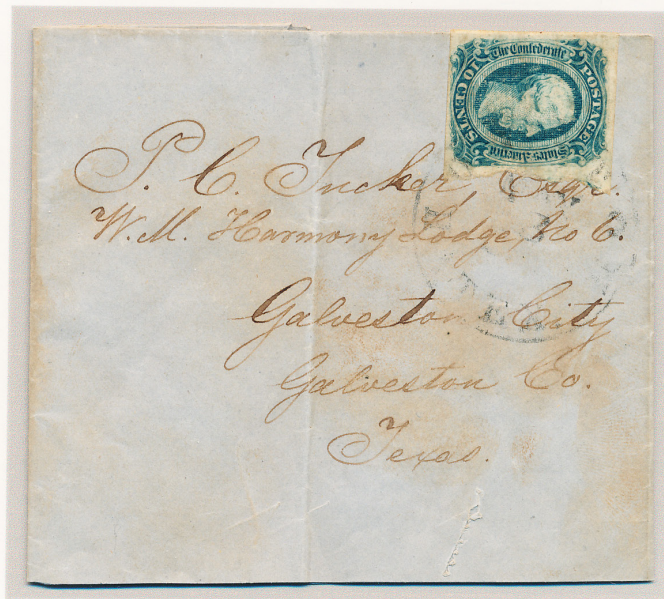 The Confederate
States America
POSTAGE
10 CENTS
P. C. Tucker, Esqr.
W. M. Harmony Lodge, No 6.
Galveston City
Galveston Co.
Texas.
TEX